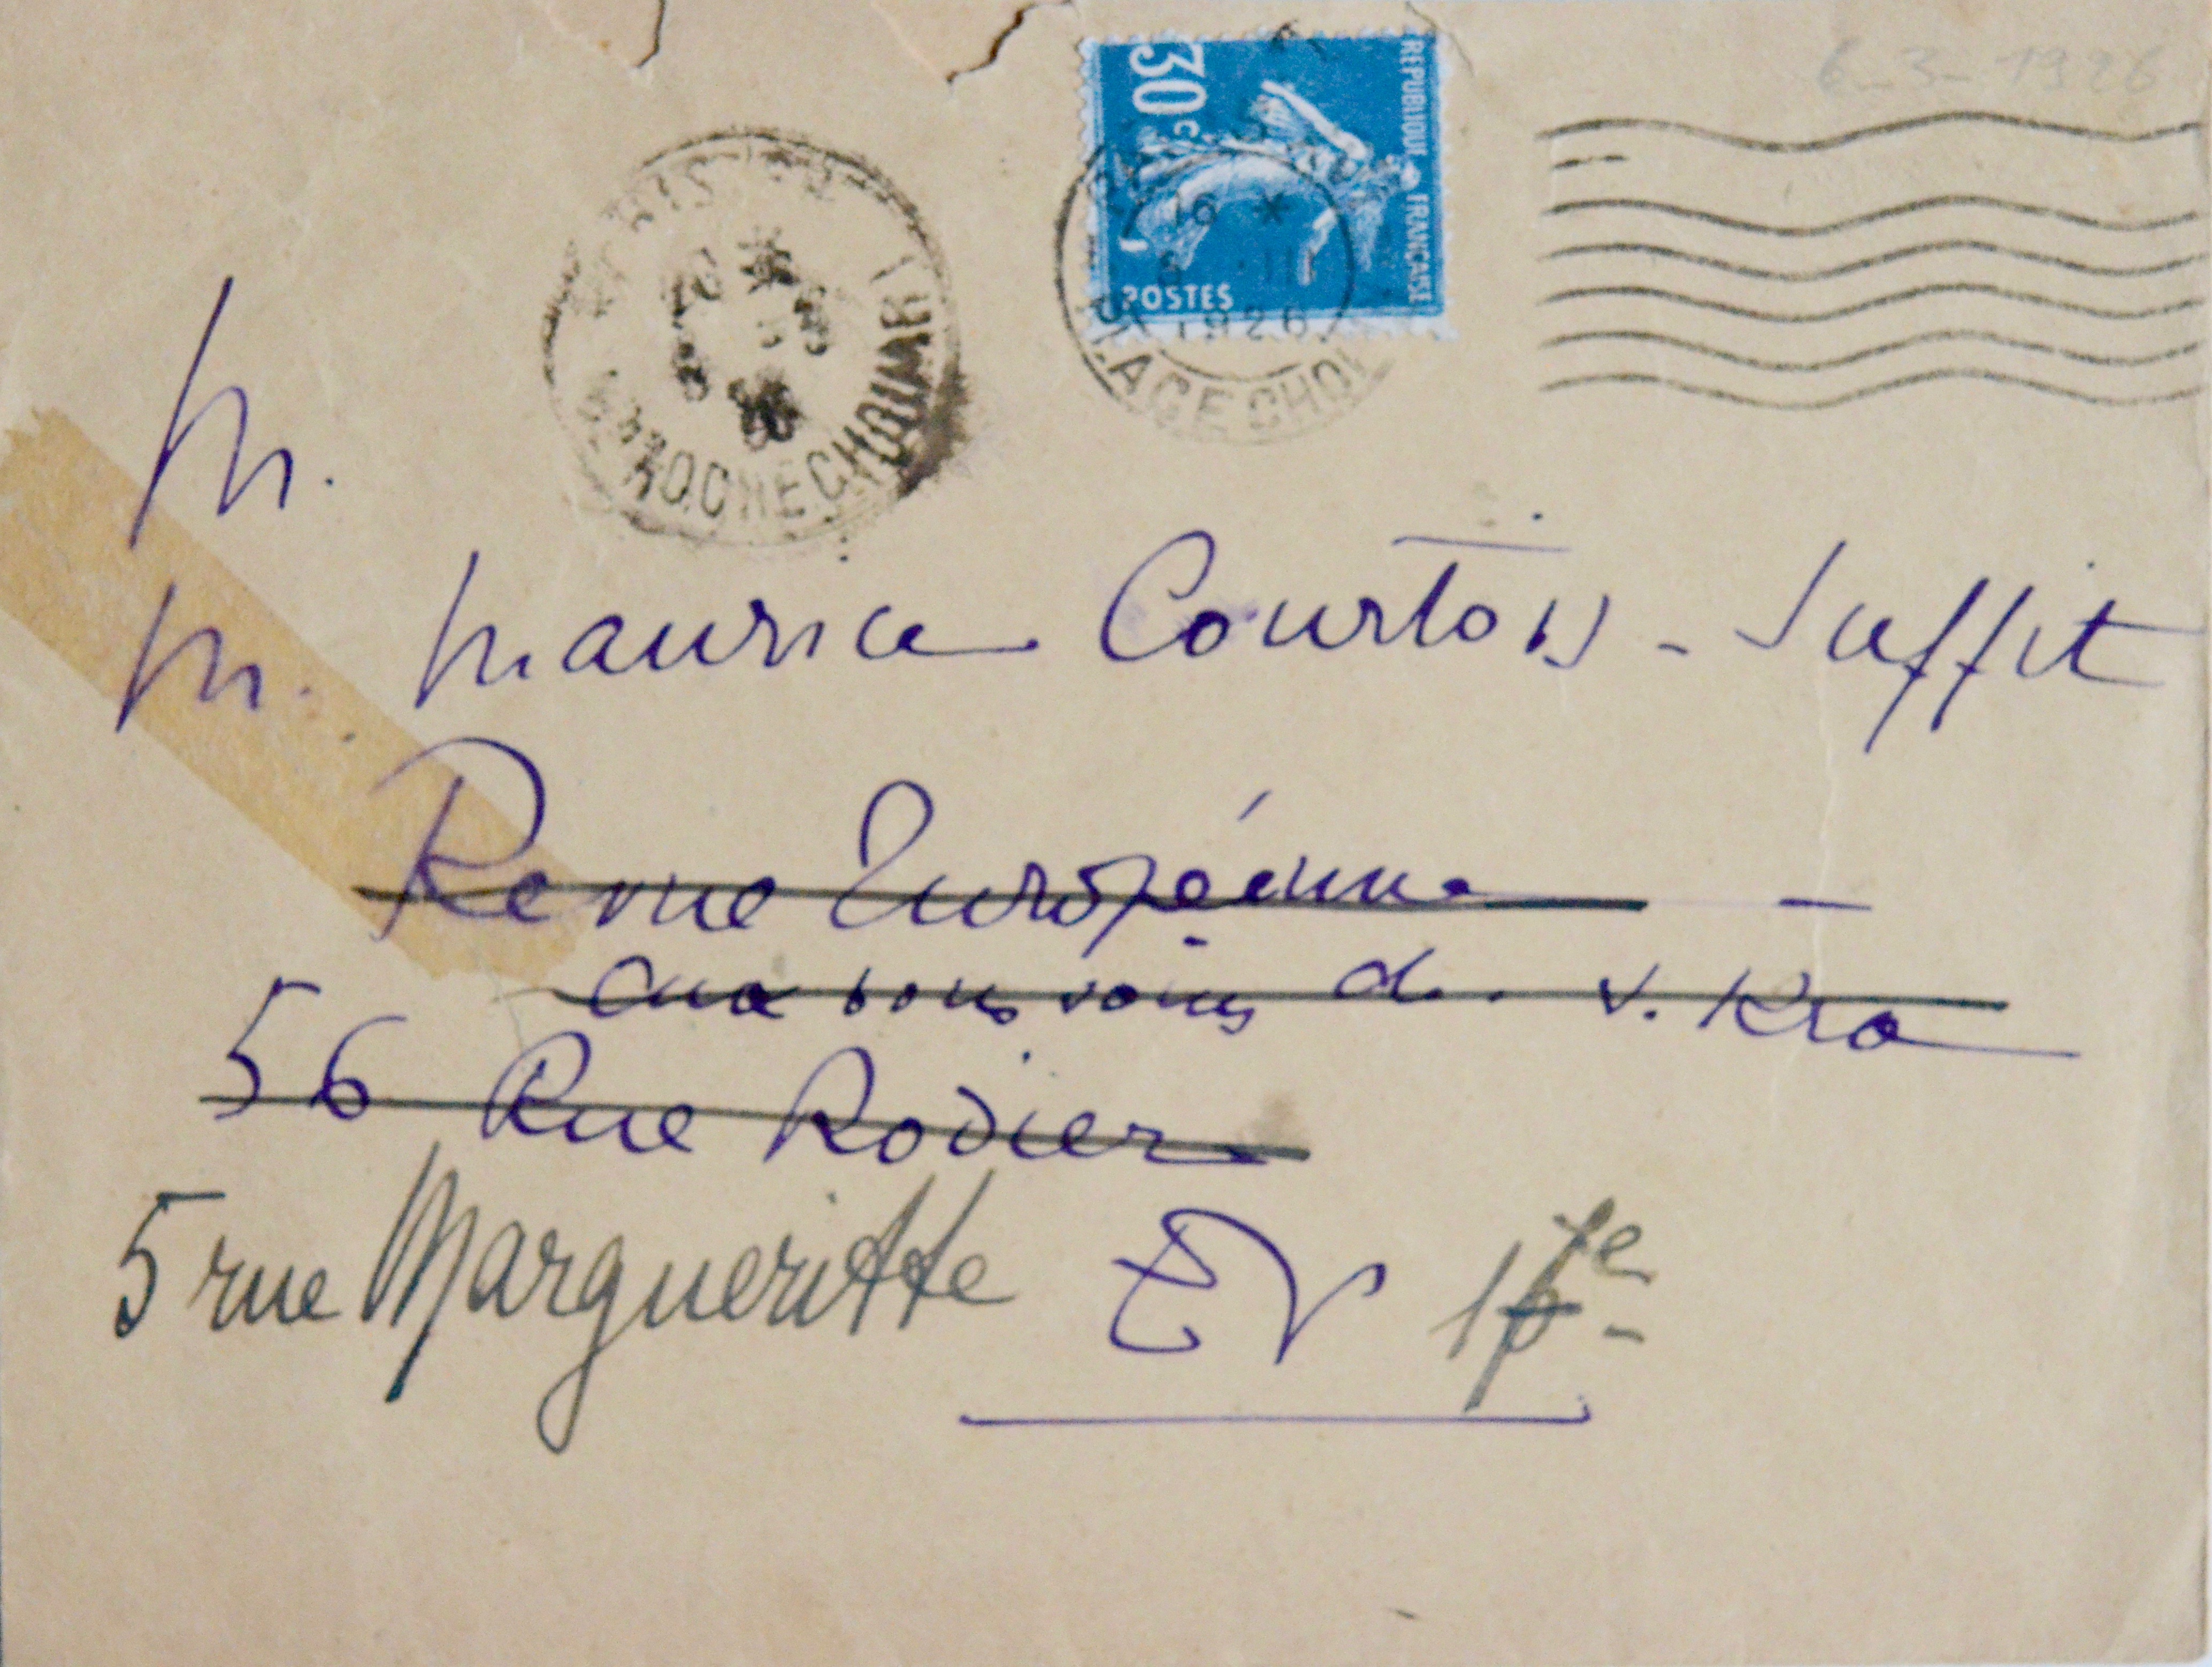 6-3-1926
30c
REPUBLIQUE FRANCAISE
POSTES
16 *
1926
ROCHECHOUART
M.
M. Maurice Courtois-Suffit
Revue Européenne -
aux bons soins de S. Kra
56 Rue Rodier
5 rue Margueritte EV 17e